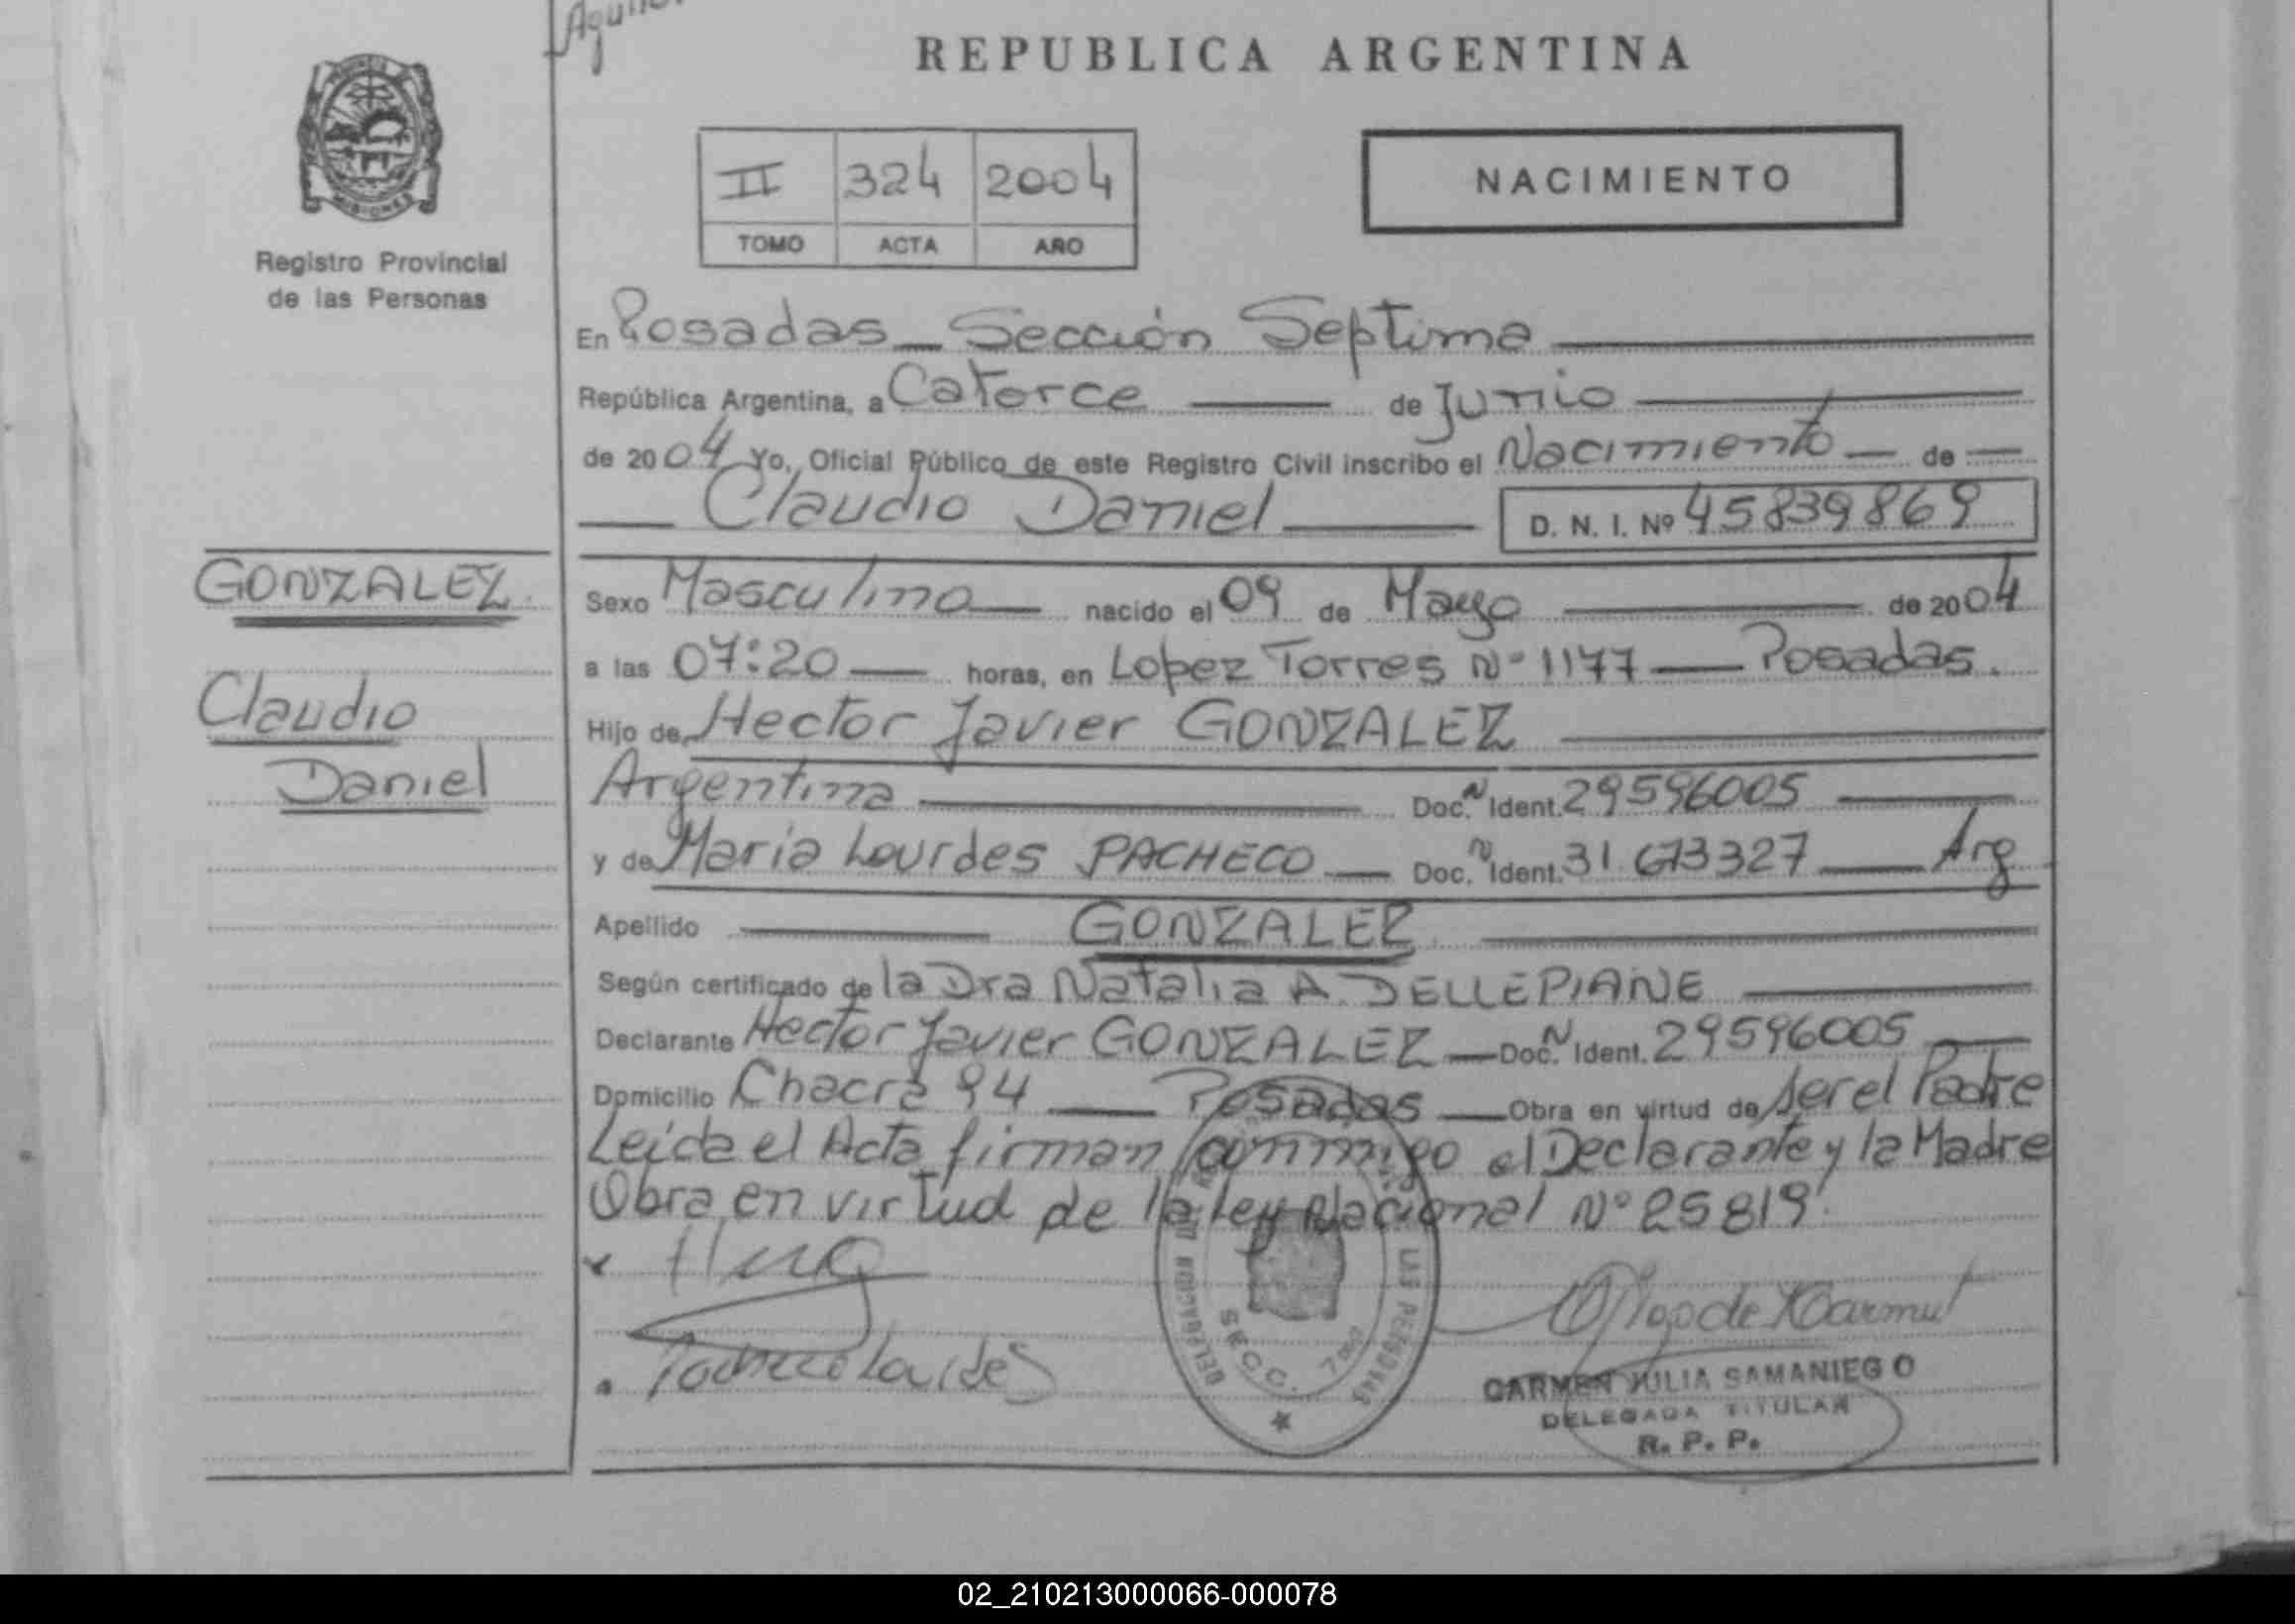 REPUBLICA ARGENTINA
MISIONES
Registro Provincial
de las Personas
II 324 2004
TOMO ACTA AÑO
NACIMIENTO
En Posadas - Sección Septima
República Argentina, a Catorce de Junio
de 2004 Yo, Oficial Público de este Registro Civil inscribo el Nacimiento de
Claudio Daniel D. N. I. Nº 45839869
GONZALEZ
Claudio
Daniel
Sexo Masculino nacido el 09 de Mayo de 2004
a las 07:20 horas, en Lopez Torres Nº 1177 Posadas.
Hijo de Hector Javier GONZALEZ
Argentina Doc.N Ident. 29596005
y de Maria Lourdes PACHECO Doc.N Ident. 31673327 Arg
Apellido GONZALEZ
Según certificado de la Dra Natalia A. DELLEPIANE
Declarante Hector Javier GONZALEZ Doc.N Ident. 29596005
Domicilio Chacra 94 Posadas Obra en virtud de ser el Padre
Leida el Acta firman conmigo el Declarante y la Madre
Obra en virtud de la Ley Nacional Nº 25819.
Pacheco Lourdes
SECC. 7
CARMEN JULIA SAMANIEGO
DELEGADA TITULAR
R. P. P.
02_210213000066-000078